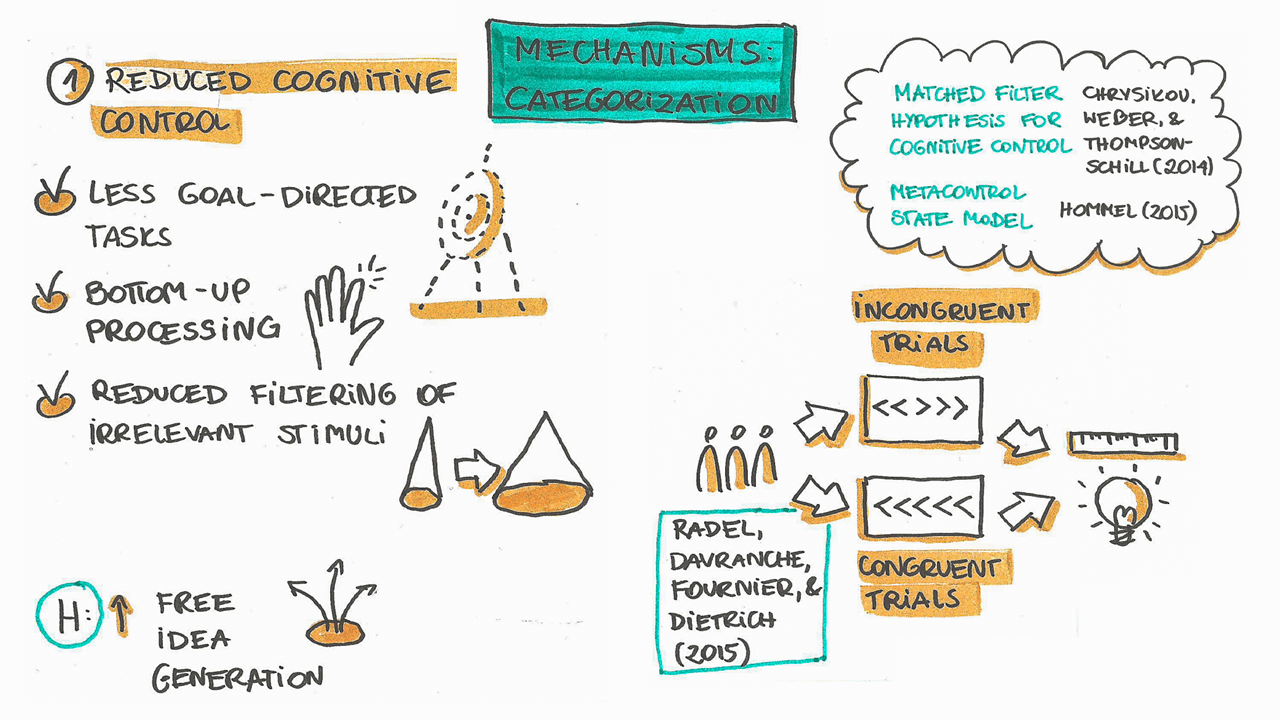 MECHANISMS:
CATEGORIZATION
1 REDUCED COGNITIVE
CONTROL
LESS GOAL-DIRECTED
TASKS
BOTTOM-UP
PROCESSING
REDUCED FILTERING OF
IRRELEVANT STIMULI
H: FREE
IDEA
GENERATION
MATCHED FILTER
HYPOTHESIS FOR
COGNITIVE CONTROL
CHRYSIKOU,
WEBER, &
THOMPSON-
SCHILL (2014)
METACONTROL
STATE MODEL
HOMMEL (2015)
INCONGRUENT
TRIALS
<<>>>
<<<<<
CONGRUENT
TRIALS
RADEL,
DAVRANCHE,
FOURNIER, &
DIETRICH
(2015)